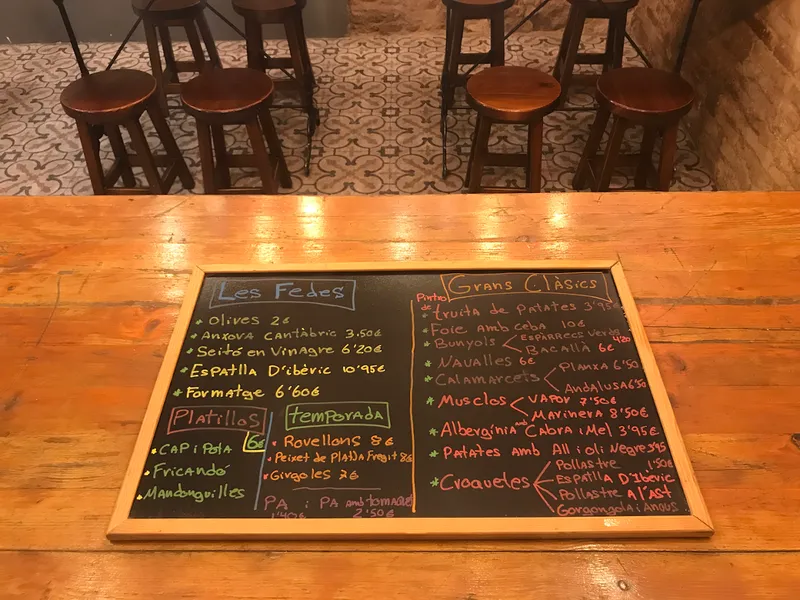 Les Fedes
Olives 2€
Anxova Cantàbric 3.50€
Seitó en Vinagre 6'20€
Espatlla D'ibèric 10'95€
Formatge 6'60€
Platillos
6€
Cap i Pota
Fricandó
Mandonguilles
temporada
Rovellons 8€
Peixet de Platja Fregit 8€
Girgoles 7€
Pa i Pa amb tomaqe
1'40€ 2'50€
Grans Clàsics
Pintxo de truita de patates 3'95
Foie amb ceba 10€
Bunyols
Espàrrecs Verds 4'20
Bacallà 6€
Navalles 6€
Calamarcets
Planxa 6'50
Andalusa 6'50
Musclos
Vapor 7'50€
Marinera 8'50€
Albergínia amb Cabra i Mel 3'95€
Patates amb All i oli Negre 3'95
Croquetes
Pollastre 1'50€
Espatlla D'Iberic
Pollastre a l'Ast
Gorgongola i Anous